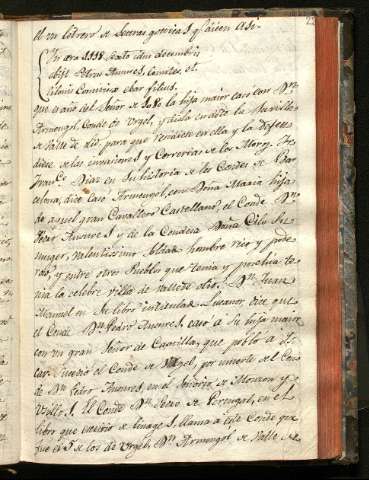 23
en un letrero de letras goticas y dicen asi
In era 1158 sexto idus decembris
obijt Petrus Ansures, comes, et
clar filius
que es año del Señor de la hija maior caso con Dn.
Armengol, Conde de Vrgel, y diola en dote la Vuevilla
de Valle de olid, para que residiese en ella y la defen
diese de las invasiones y Correrias de los Moros.
Franco. Diago en su historia de los Condes de Bar
celona, dice caso Armengol, con Doña Maria hija
de aquel gran Cavallero Castellano, el Conde Dn.
Pedro Ansures y de la Condesa Doña Elo su
muger, valentissimo soldado hombre rico y pode
roso, y entre otros Pueblos que tenia y posehia te
nia la celebre villa de Vallede olid. Dn. Juan
Manuel en su libro intitulado Lucanor, dice que
el Conde Dn. Pedro Ansures, caso a su hija maior
con un gran Señor de Castilla, que poblo a
Cuellar el Conde de Vrgel, por muerte del Con
de Dn. Pedro Ansures, en el Señorio de
El Conde Dn. Pedro de Portugal, en el
libro que escrivio de linages, llama a este Conde que
fue el 5 de los de Vrgel, Dn. Armengol de Valle de